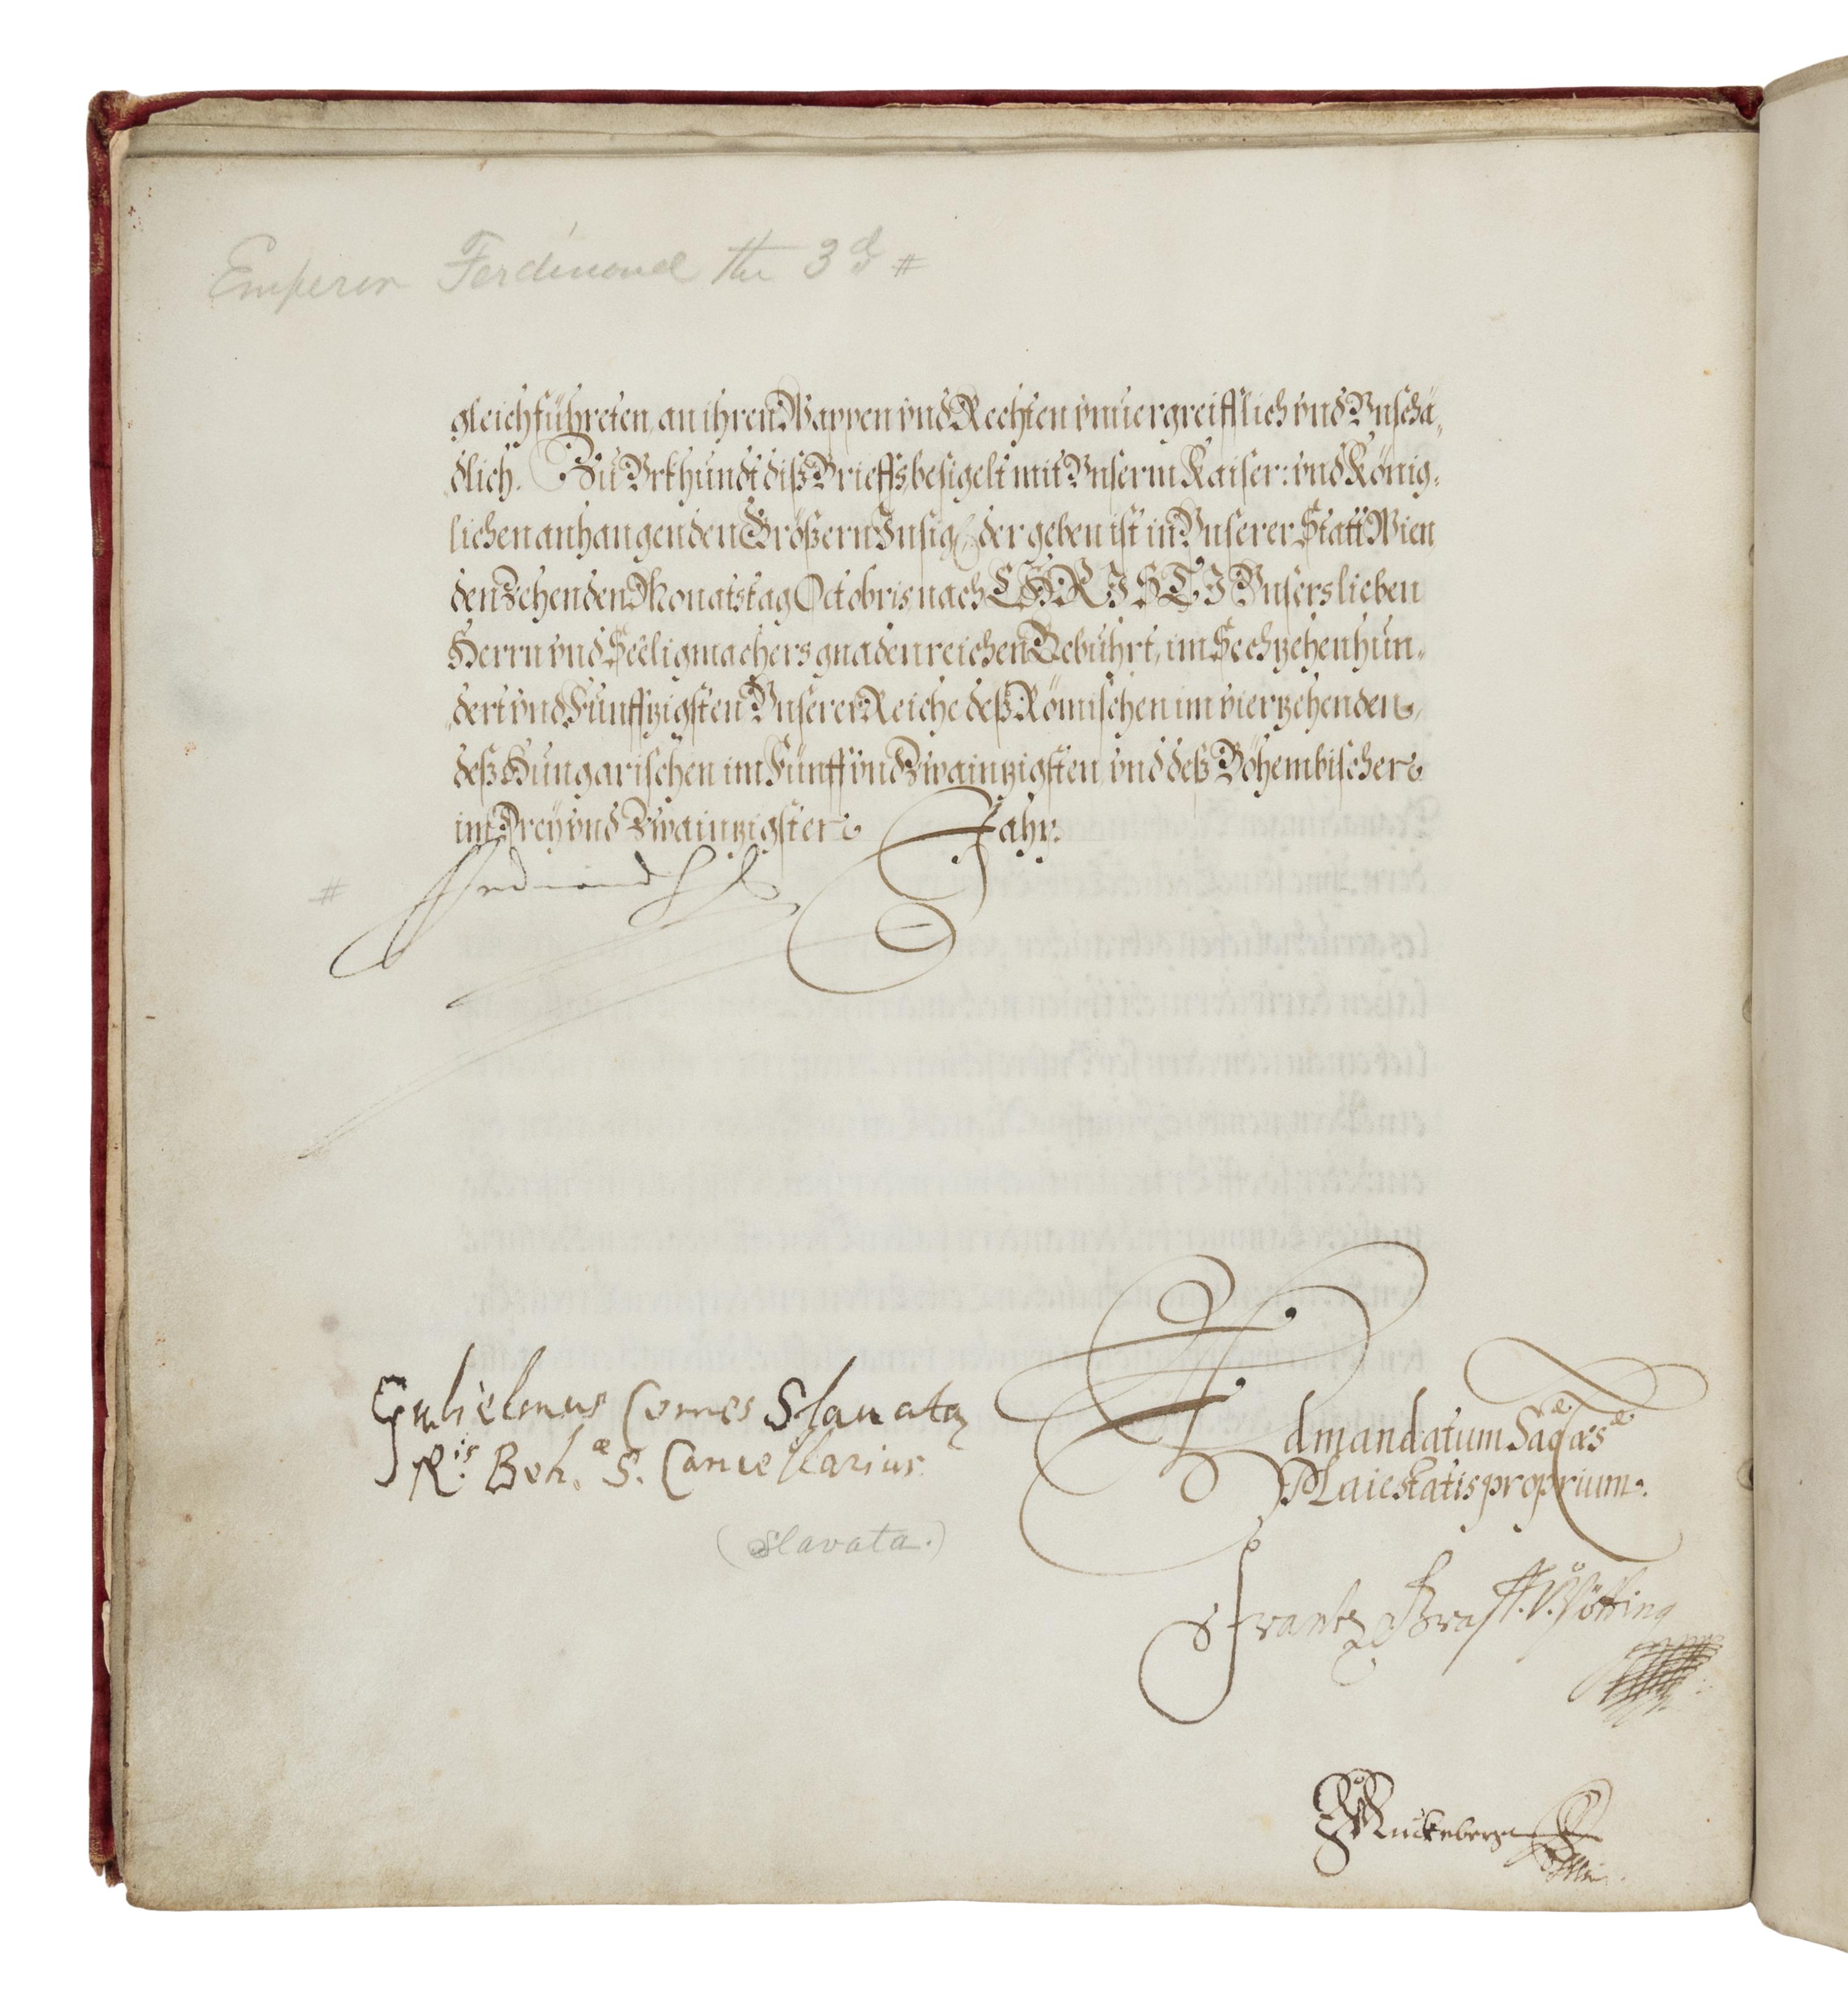 Emperor Ferdinand the 3d #
gleichführeten, an ihren Wappen vnd Rechten vnuergreifflich vnd Vnschä,
dlich. Zu Vrkhundt diß Brieffs, besigelt mit Vnserm Kaiser: vnd König,
lichen anhangenden Größern Insigl, der geben ist in Vnserer Statt Wien
den Zehenden Monatstag Octobris nach CHRISTI Vnsers lieben
Herrn vnd Seeligmachers gnadenreichen Gebuhrt, im Sechzehenhun,
dert vnd Fünffzigsten Vnserer Reiche deß Römischen im vierzehenden,
deß Hungarischen im Fünff vnd Zwaintzigsten, vnd deß Böhembischen
im Drey vnd Zwaintzigsten Jahr.
# Ferdinand
Gulielmus Comes Slauata
R.is Boh.æ S. Cancellarius
(Slavata.)
Ad mandatum Sacæ Cæsæ
Maiestatis proprium.
Frantz Graff. V. Pötting